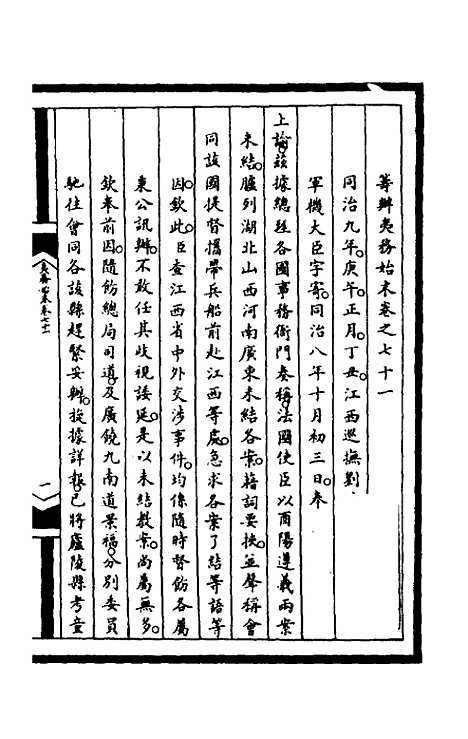 籌辦夷務始末卷之七十一
同治九年。庚午。正月。丁丑。江西巡撫劉
軍機大臣字寄。同治八年十月初三日。奉
上諭。茲據總理各國事務衙門奏稱。法國使臣以酉陽遵義兩案
未結。臚列湖北山西河南廣東未結各案。藉詞要挾。並聲稱會
同該國提督攜帶兵船前赴江西等處。急求各案了結等語等
因。欽此。臣查江西省中外交涉事件。均係隨時督飭各屬
秉公訊辦。不敢任其歧視諉延。是以未結教案。尚屬無多。
欽奉前因。隨飭總局司道。及廣饒九南道景福。分別委員
馳往會同各該縣趕緊妥辦。旋據詳報。已將廬陵縣考童
夷務始末卷七十一
一